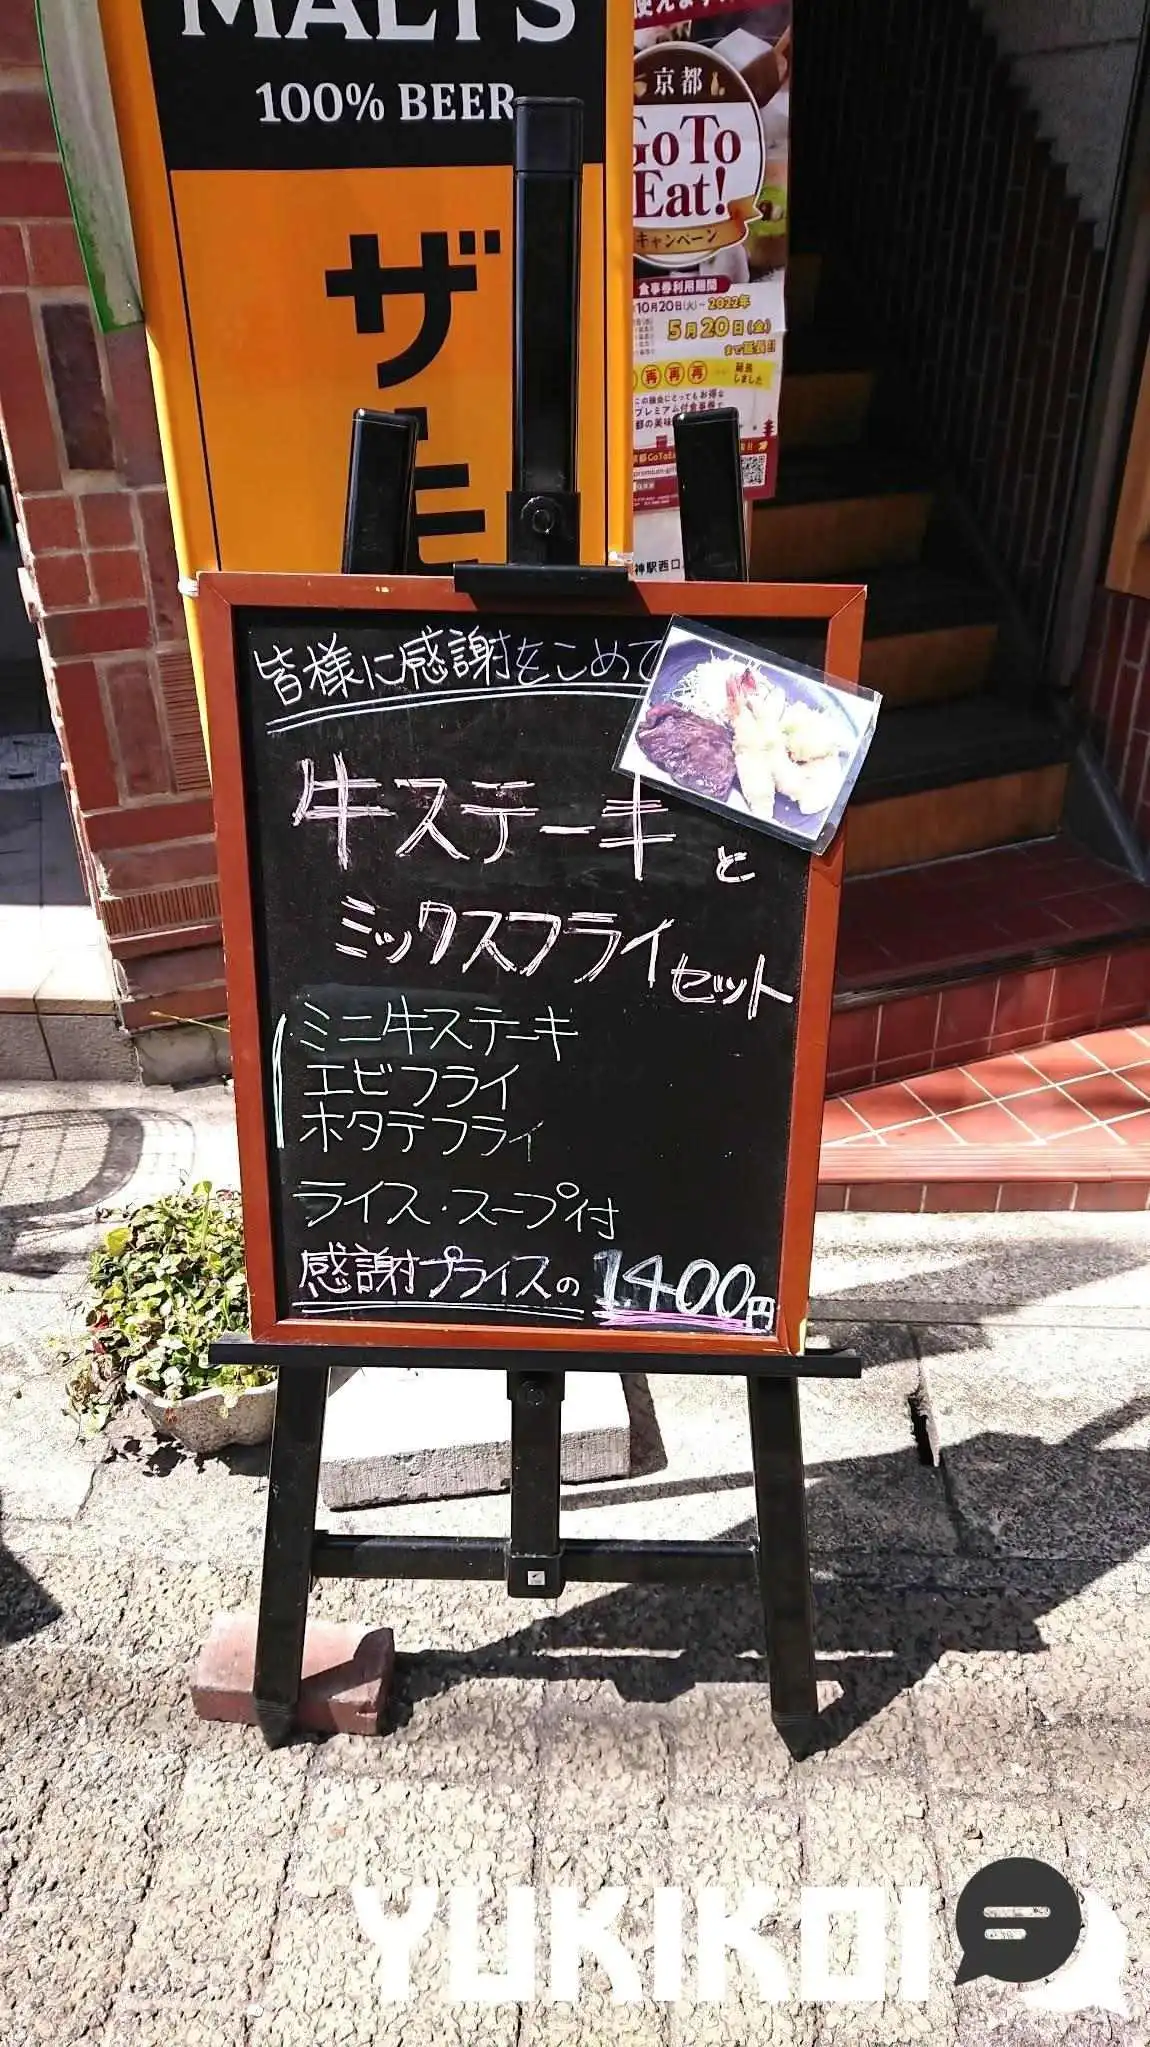 MALT'S
100% BEER
ザ・モ
京都
GoTo
Eat!
キャンペーン
食事券利用期間
10月20日(火)~2022年
5月20日(金)
まで延長!!
再再再
延長
しました
プレミアム付食事券で
神駅西口
皆様に感謝をこめて
牛ステーキと
ミックスフライセット
ミニ牛ステーキ
エビフライ
ホタテフライ
ライス・スープ付
感謝プライスの1400円
YUKIKOI